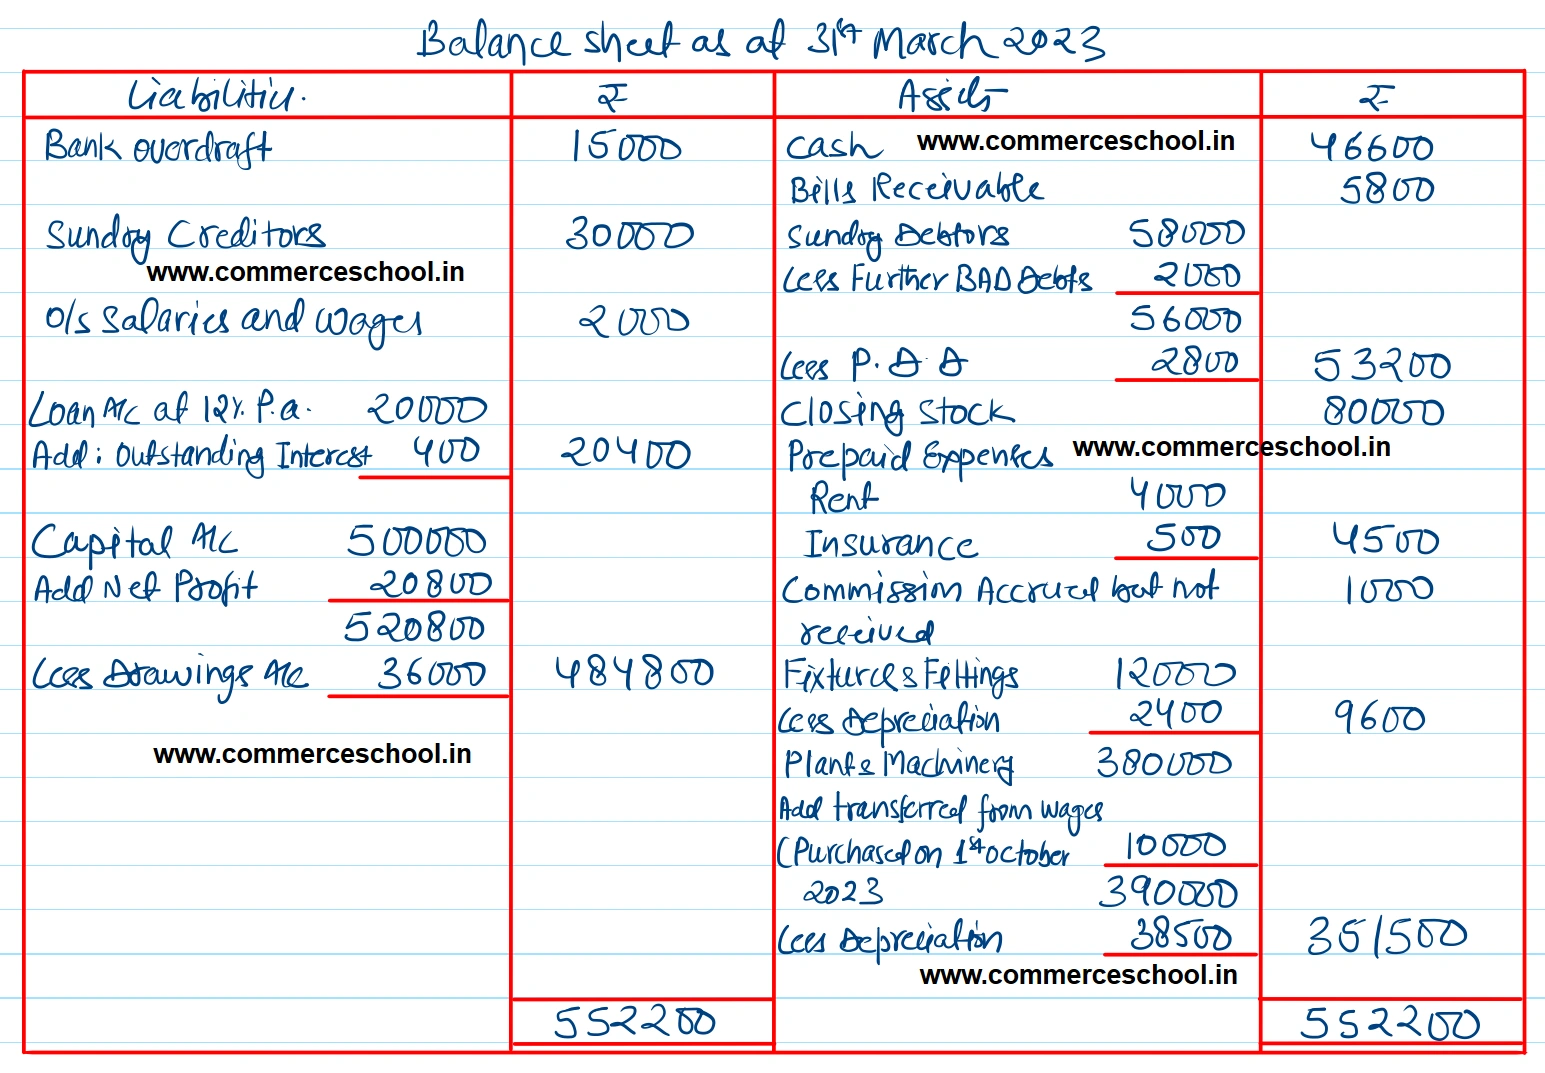 Balance sheet as at 31st March 2023
Liabilities. ₹ Assets ₹
Bank overdraft 15000 Cash www.commerceschool.in 46600
Bills Receivable 5800
Sundry Creditors 30000 Sundry Debtors 58000
www.commerceschool.in Less Further BAD Debts 2000
O/s Salaries and wages 2000 56000
Less P.D.D 2800 53200
Loan A/c at 12% P.a. 20000 Closing Stock 80000
Add: Outstanding Interest 400 20400 Prepaid Expenses www.commerceschool.in
Rent 4000
Capital A/c 500000 Insurance 500 4500
Add Net Profit 20800 Commission Accrued but not 1000
520800 received
Less Drawings A/c 36000 484800 Fixtures & Fittings 12000
Less Depreciation 2400 9600
www.commerceschool.in Plant & Machinery 380000
Add transferred from wages
(Purchased on 1st october 10000
2023 390000
Less Depreciation 38500 351500
www.commerceschool.in
552200 552200